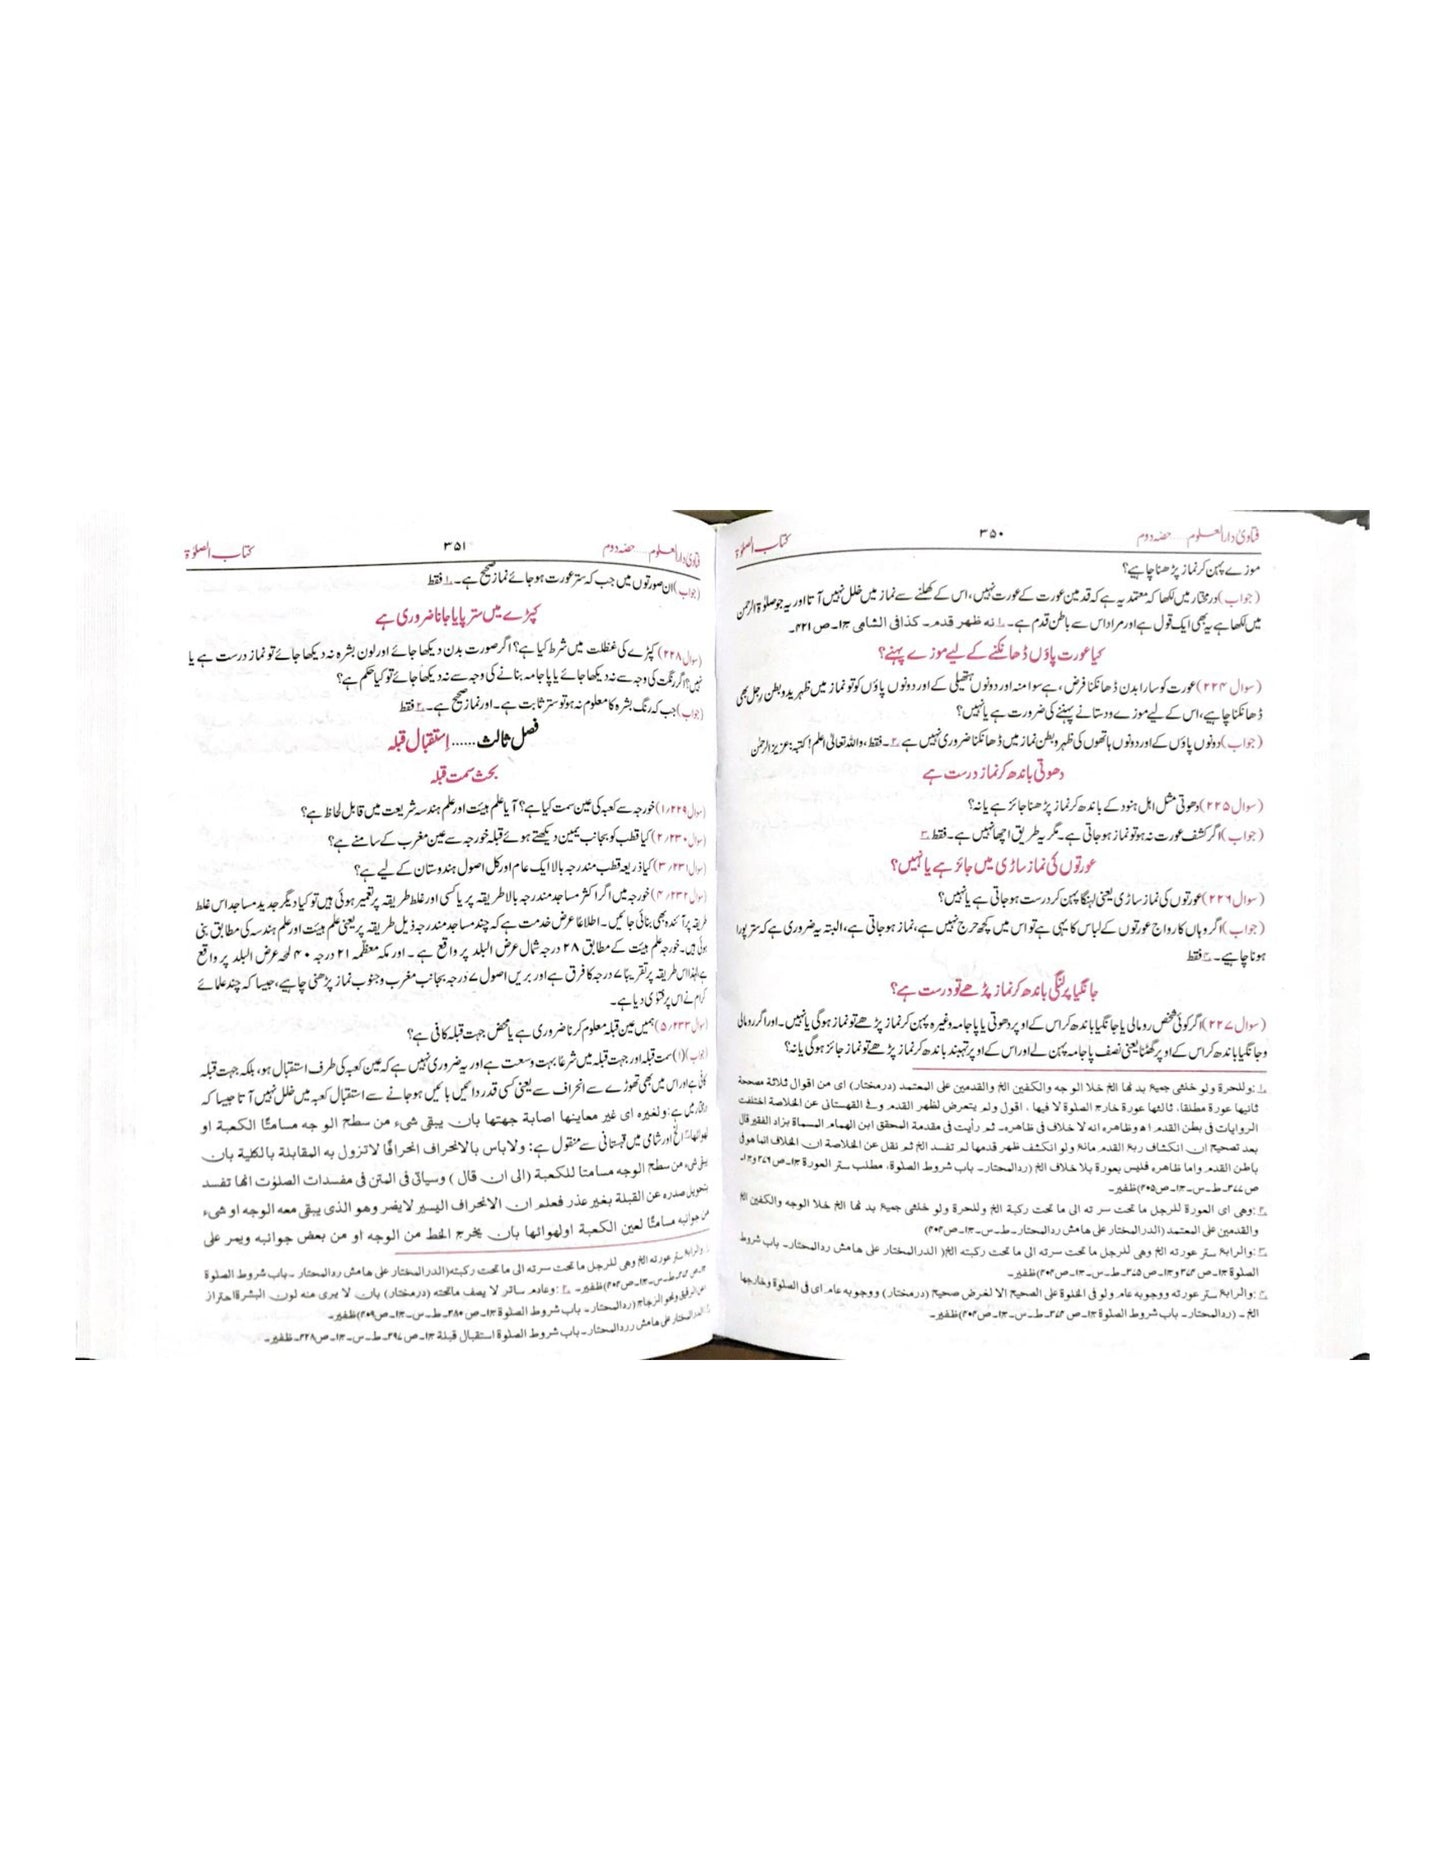 فتاویٰ دارالعلوم.... حصہ دوم ۳۵۰ کتاب الصلوٰۃ
موزے پہن کر نماز پڑھنا چاہیے؟
(جواب) درمختار میں لکھا کہ معتمد یہ ہے کہ قدمین عورت کے عورت نہیں، اس کے کھلنے سے نماز میں خلل نہیں آتا اور یہ جو صلوٰۃ الرحمن
میں لکھا ہے یہ بھی ایک قول ہے اور مراد اس سے باطن قدم ہے۔ نہ ظهر قدم۔ کذافی الشامی ج۱۔ ص ۴۲۱۔
کیا عورت پاؤں ڈھانکنے کے لیے موزے پہنے؟
(سوال ۲۲۴) عورت کو سارا بدن ڈھانکنا فرض، ہے سوا منہ اور دونوں ہتھیلی کے اور دونوں پاؤں کو تو نماز میں ظہر ید و بطن رجل بھی
ڈھانکنا چاہیے، اس کے لیے موزے و دستانے پہننے کی ضرورت ہے یا نہیں؟
(جواب) دونوں پاؤں کے اور دونوں ہاتھوں کی ظہر و بطن نماز میں ڈھانکنا ضروری نہیں ہے ۲۔ فقط، واللہ تعالیٰ اعلم! کتبہ: عزیز الرحمٰن
دھوتی باندھ کر نماز درست ہے
(سوال ۲۲۵) دھوتی مثل اہل ہنود کے باندھ کر نماز پڑھنا جائز ہے یا نہ؟
(جواب) اگر کشف عورت نہ ہو تو نماز ہو جاتی ہے۔ مگر یہ طریق اچھا نہیں ہے۔ فقط ۳
عورتوں کی نماز ساڑی میں جائز ہے یا نہیں؟
(سوال ۲۲۶) عورتوں کی نماز ساڑی یعنی لہنگا پہن کر درست ہو جاتی ہے یا نہیں؟
(جواب) اگر وہاں کا رواج عورتوں کے لباس کا یہی ہے تو اس میں کچھ حرج نہیں ہے، نماز ہو جاتی ہے، البتہ یہ ضروری ہے کہ ستر پورا
ہونا چاہیے۔ ۴ فقط
جانگیا پر لنگی باندھ کر نماز پڑھے تو درست ہے؟
(سوال ۲۲۷) اگر کوئی شخص رومالی یا جانگیا باندھ کر اس کے اوپر دھوتی یا پاجامہ وغیرہ پہن کر نماز پڑھے تو نماز ہو گی یا نہیں۔ اور اگر رومالی
و جانگیا باندھ کر اس کے اوپر گھٹنا یعنی نصف پاجامہ پہن لے اور اس کے اوپر تہبند باندھ کر نماز پڑھے تو نماز جائز ہو گی یا نہ؟
۱: وللحرة ولو خنثى جميع بدنها الخ خلا الوجه والكفين الخ والقدمين على المعتمد (درمختار) ای من اقوال ثلاثة مصححة
ثانيها عورة مطلقا، ثالثها عورة خارج الصلوة لا فيها، اقول ولم يتعرض لظهر القدم وفی القهستانی عن الخلاصة اختلفت
الروايات فی بطن القدم اه وظاهره انه لا خلاف فی ظاهره۔ ثم رأيت فی مقدمة المحقق ابن الهمام المسماة بزاد الفقير قال
بعد تصحيح ان انكشاف ربع القدم مانع ولو انكشف ظهر قدمها لم تفسد الخ ثم نقل عن الخلاصة ان الخلاف انما هو فی
باطن القدم واما ظاهره فليس بعورة بلا خلاف الخ (ردالمحتار۔ باب شروط الصلوة، مطلب ستر العورة ج۱۔ ص ۳۷۶ و ج۱۔
ص ۳۷۷۔ ط۔ س۔ ج۱۔ ص۴۰۵) ظفیر۔
۲: وهی ای العورة للرجل ما تحت سرته الى ما تحت ركبة الخ وللحرة ولو خنثى جميع بدنها الخ خلا الوجه والكفين الخ
والقدمين على المعتمد (الدرالمختار على هامش ردالمحتار۔ ط۔س۔ج۱۔ص۴۰۴)
۳: والرابع ستر عورته الخ وهی للرجل ما تحت سرته الى ما تحت ركبته الخ (الدرالمختار على هامش ردالمحتار۔ باب شروط
الصلوة ج۱۔ ص ۳۷۴ و ج۱۔ ص ۳۷۵۔ ط۔س۔ ج۱۔ ص۴۰۴) ظفیر۔
۴: والرابع ستر عورته ووجوبه عام ولو فی الخلوة على الصحيح الا لغرض صحيح (درمختار) ووجوبه عام ای فی الصلوة وخارجها
الخ۔ (ردالمحتار۔ باب شروط الصلوة ج۱۔ ص ۳۷۴۔ ط۔س۔ج۱۔ ص۴۰۴) ظفیر۔
فتاویٰ دارالعلوم.... حصہ دوم ۳۵۱ کتاب الصلوٰۃ
(جواب) ان صورتوں میں جب کہ ستر عورت ہو جائے نماز صحیح ہے۔ ۱ فقط
کپڑے میں ستر پایا جانا ضروری ہے
(سوال ۲۲۸) کپڑے کی غفلت میں شرط کیا ہے؟ اگر صورت بدن دیکھا جائے اور لون بشرہ نہ دیکھا جائے تو نماز درست ہے یا
نہیں؟ اگر رنگت کی وجہ سے نہ دیکھا جائے یا پاجامہ بنانے کی وجہ سے نہ دیکھا جائے تو کیا حکم ہے؟
(جواب) جب کہ رنگ بشرہ کا معلوم نہ ہو تو ستر ثابت ہے۔ اور نماز صحیح ہے۔ ۲ فقط
فصل ثالث...... استقبال قبلہ
بحث سمت قبلہ
(سوال ۱/۲۲۹) خورجہ سے کعبہ کی عین سمت کیا ہے؟ آیا علم ہیئت اور علم ہندسہ شریعت میں قابل لحاظ ہے؟
(سوال ۲/۲۳۰) کیا قطب کو بجانب یمین دیکھتے ہوئے قبلہ خورجہ سے عین مغرب کے سامنے ہے؟
(سوال ۳/۲۳۱) کیا ذریعہ قطب مندرجہ بالا ایک عام اور کل اصول ہندوستان کے لیے ہے؟
(سوال ۴/۲۳۲) خورجہ میں اگر اکثر مساجد مندرجہ بالا طریقہ پر یا کسی اور غلط طریقہ پر تعمیر ہوئی ہیں تو کیا دیگر جدید مساجد اس غلط
طریقہ پر آئندہ بھی بنائی جائیں۔ اطلاعاً عرض خدمت ہے کہ چند مساجد مندرجہ ذیل طریقہ پر یعنی علم ہیئت اور علم ہندسہ کی مطابق بنی
ہوئی ہیں۔ خورجہ علم ہیئت کے مطابق ۲۸ درجہ شمال عرض البلد پر واقع ہے۔ اور مکہ معظمہ ۲۱ درجہ ۴۰ لمحہ عرض البلد پر واقع
ہے لہٰذا اس طریقہ پر تقریباً ۷ درجہ کا فرق ہے اور بریں اصول ۷ درجہ بجانب مغرب و جنوب نماز پڑھنی چاہیے، جیسا کہ چند علمائے
کرام نے اس پر فتویٰ دیا ہے۔
(سوال ۵/۲۳۳) ہمیں عین قبلہ معلوم کرنا ضروری ہے یا محض جہت قبلہ کافی ہے؟
(جواب) (۱) سمت قبلہ اور جہت قبلہ میں شرعاً بہت وسعت ہے اور یہ ضروری نہیں ہے کہ عین کعبہ کی طرف استقبال ہو، بلکہ جہت قبلہ
کافی ہے اور اس میں بھی تھوڑے سے انحراف سے یعنی کسی قدر دائیں بائیں ہو جانے سے استقبال کعبہ میں خلل نہیں آتا جیسا کہ
درمختار میں ہے: ولغيره ای غير معاينها اصابة جهتها بان يبقى شیء من سطح الوجه مسامتًا للكعبة او
لهوائها الخ اور شامی میں قہستانی سے منقول ہے: ولا باس بالانحراف انحرافًا لاتزول به المقابلة بالكلية بان
يبقى شیء من سطح الوجه مسامتا للكعبة (الى ان قال) وسياتی فی المتن فی مفسدات الصلوت انها تفسد
بتحويل صدره عن القبلة بغير عذر فعلم ان الانحراف اليسير لايضر وهو الذی يبقى معه الوجه او شیء
من جوانبه مسامتًا لعين الكعبة اولهوائها بان يخرج الخط من الوجه او من بعض جوانبه ويمر على
۱: والرابع ستر عورته الخ وهی للرجل ما تحت سرته الى ما تحت ركبته (الدرالمختار على هامش ردالمحتار۔ باب شروط الصلوة
ج۱۔ ص ۳۷۴۔ ط۔س۔ج۱۔ص۴۰۴) ظفیر۔ ۲: وعادم ساتر لا يصف ماتحته (درمختار) بان لا يرى منه لون البشرة احتراز
عن الرقيق ونحو الزجاج (ردالمحتار۔ باب شروط الصلوة ج۱۔ ص ۳۸۰۔ ط۔س۔ ج۱۔ ص۴۰۹) ظفیر۔
الدر المختار على هامش ردالمحتار۔ باب شروط الصلوة استقبال قبلة ج۱۔ ص ۳۹۷۔ ط۔س۔ ج۱۔ ص۴۲۸۔ ظفیر۔